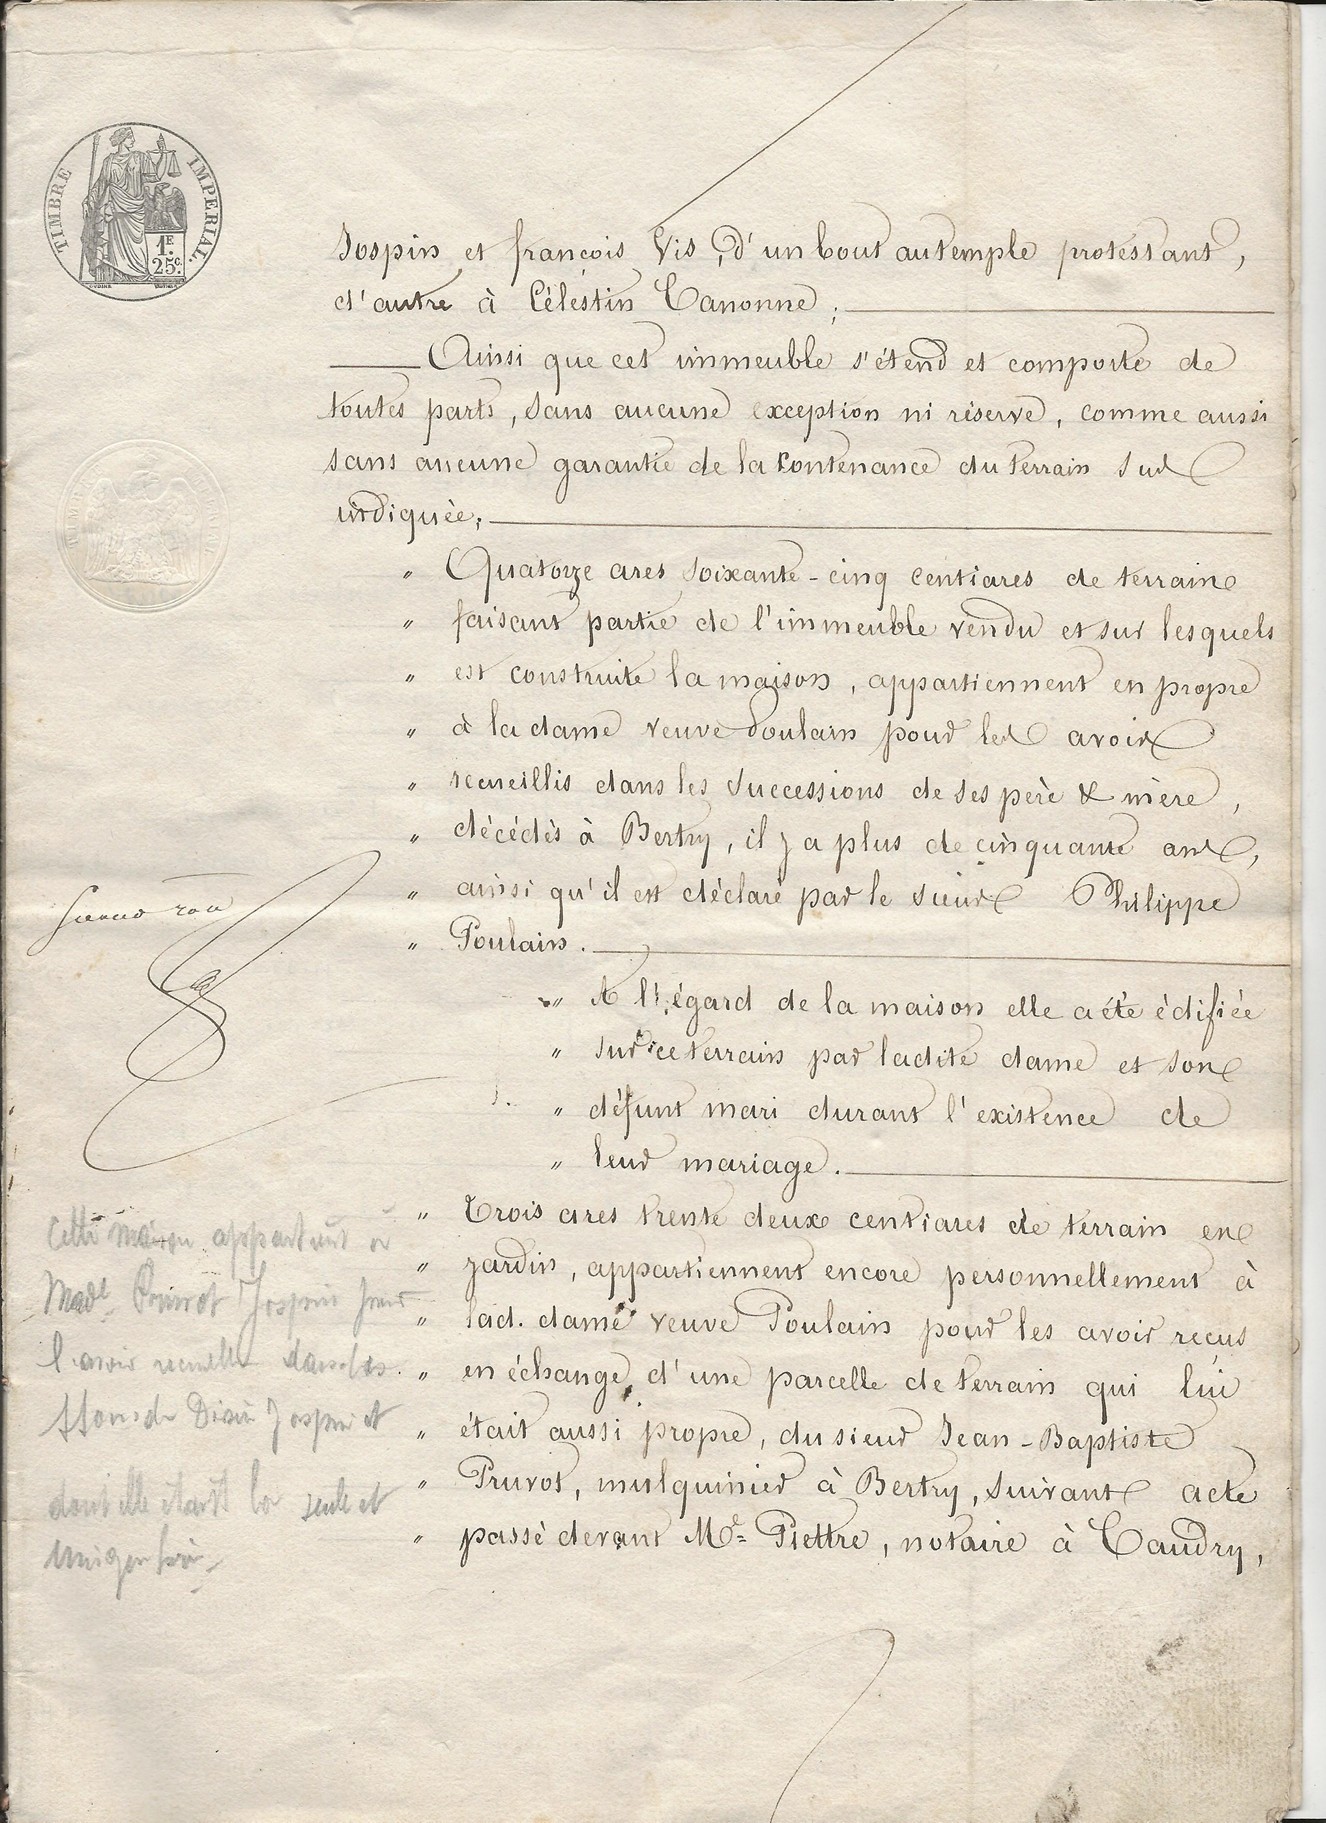 TIMBRE IMPERIAL
1F.
25c.
Jospin et françois Vis, d'un bout au temple protestant,
d'autre à Célestin Canonne ;
Ainsi que cet immeuble s'étend et comporte de
toutes parts, sans aucune exception ni réserve, comme aussi
sans aucune garantie de la contenance du terrain sus
indiquée ;
" Quatorze ares soixante-cinq centiares de terrain
" faisant partie de l'immeuble vendu et sur lesquels
" est construite la maison, appartiennent en propre
" à la dame veuve Poulain pour les avoir
" recueillis dans les successions de ses père & mère,
" décédés à Bertry, il y a plus de cinquante ans,
" ainsi qu'il est déclaré par le sieur Philippe
" Poulain.
" A l'égard de la maison elle a été édifiée
" sur ce terrain par ladite dame et son
" défunt mari durant l'existence de
" leur mariage.
" Trois ares trente deux centiares de terrain en
" jardin, appartiennent encore personnellement à
" lad. dame veuve Poulain pour les avoir reçus
" en échange, d'une parcelle de terrain qui lui
" était aussi propre, du sieur Jean-Baptiste
" Pruvot, mulquinier à Bertry, suivant acte
" passé devant Me. Piettre, notaire à Caudry,
Cette maison appartient à
Made Pruvot Jospin pour
l'avoir recueillie dans les
Jospin et
dont elle était la seule et